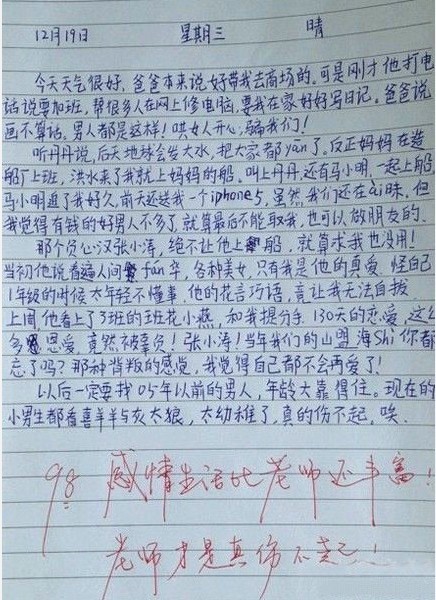 12月19日 星期三 晴
今天天气很好，爸爸本来说好带我去商场的。可是刚才他打电
话说要加班，帮很多人在网上修电脑，要我在家好好写日记。爸爸说
画不算话，男人都是这样！哄女人开心，骗我们！
听丹丹说，后天地球会发大水，把大家都yān了，反正妈妈在造
船厂上班，洪水来了我就上妈妈的船，叫上丹丹，还有马小明，一起上船，
马小明追了我好久，前天还送我一个iphone5，虽然我们还在ài昧，但
我觉得有钱的好男人不多了，就算最后不能取我，也可以做朋友的。
那个负心汉张小涛，绝不让他上船，就算求我也没用！
当初他说看遍人间fán华，各种美女，只有我是他的真爱，怪自己
1年级的时候太年轻不懂事，他的花言巧语，竟让我无法自拔，
上周，他看上了3班的班花小燕，和我提分手，130天的恋爱，这么
多恩爱，竟然被辜负！张小涛！当年我们的山盟海Shi你都
忘了吗？那种背叛的感觉，我觉得自己都不会再爱了！
以后一定要找05年以前的男人，年龄大靠得住。现在的
小男生都看喜羊羊与灰太狼，太幼稚了，真的伤不起，唉。
98 感情生活比老师还丰富！
老师才是真伤不起！